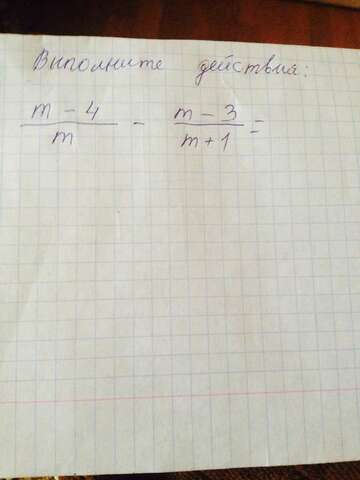 Выполните действия:
m - 4 / m - m - 3 / m + 1 =